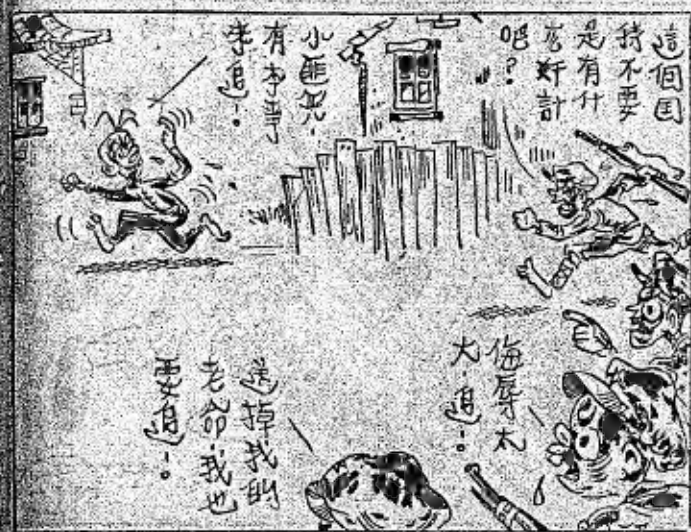 這個囯
特不要
是有什
麼奸計
吧？
小匪兒-
有本事
來追-。
侮辱太
大-追-。
送掉我的
老命-我也
要追-。